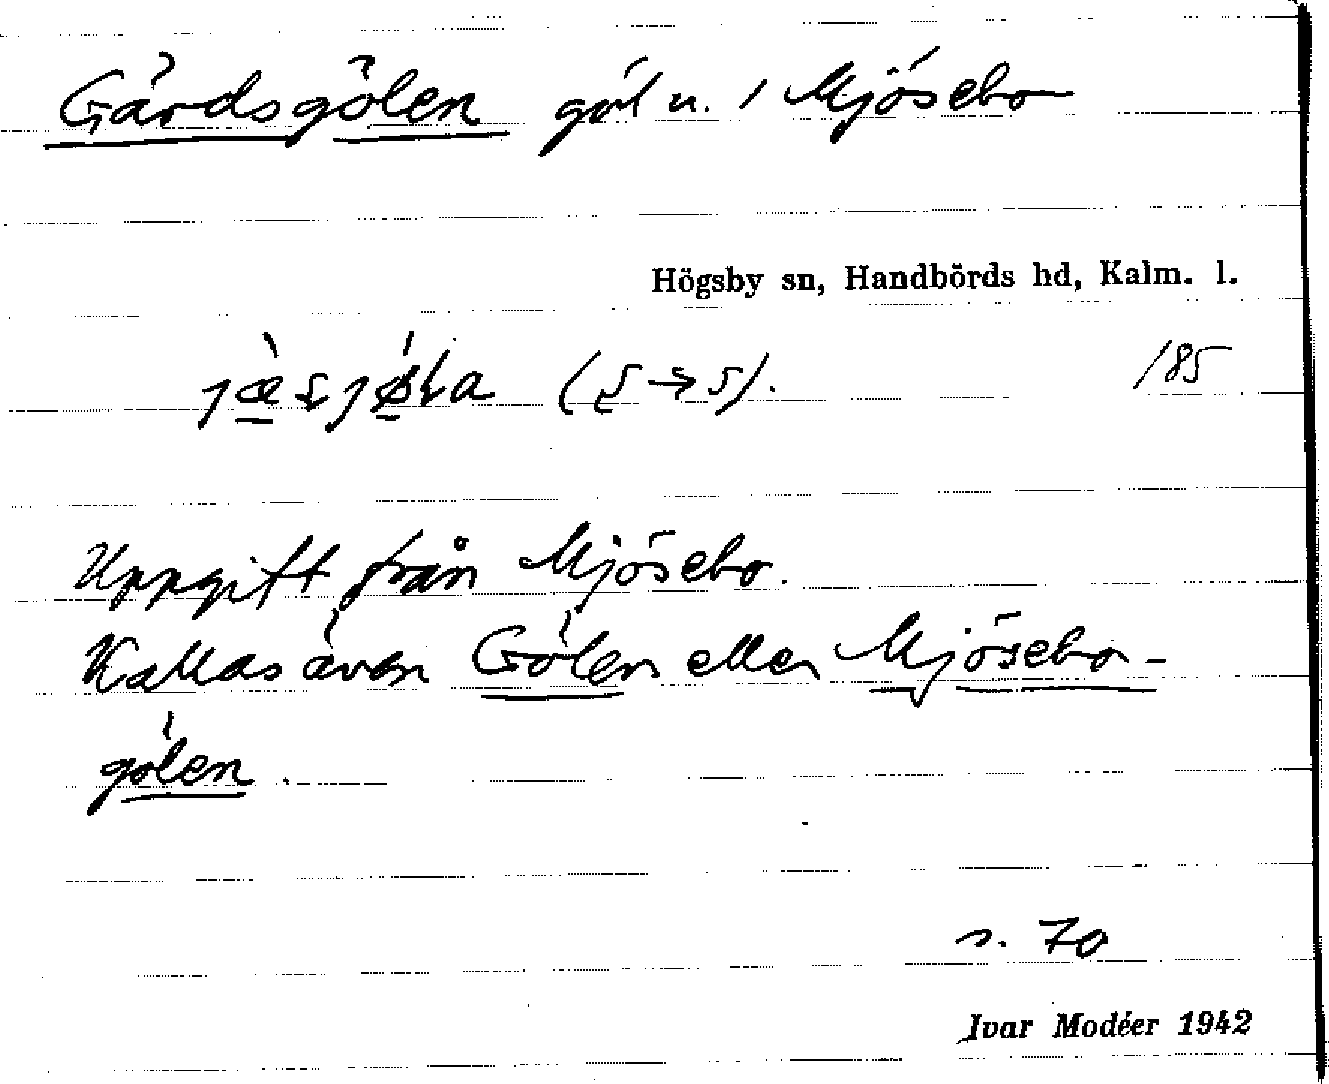 Gärdsgölen göl u. / Mjösebo
Högsby sn, Handbörds hd, Kalm. l.
/85
Uppgift från Mjösebo.
Kallas även Gölen eller Mjösebo-
gölen.
s. 70
Ivar Modéer 1942